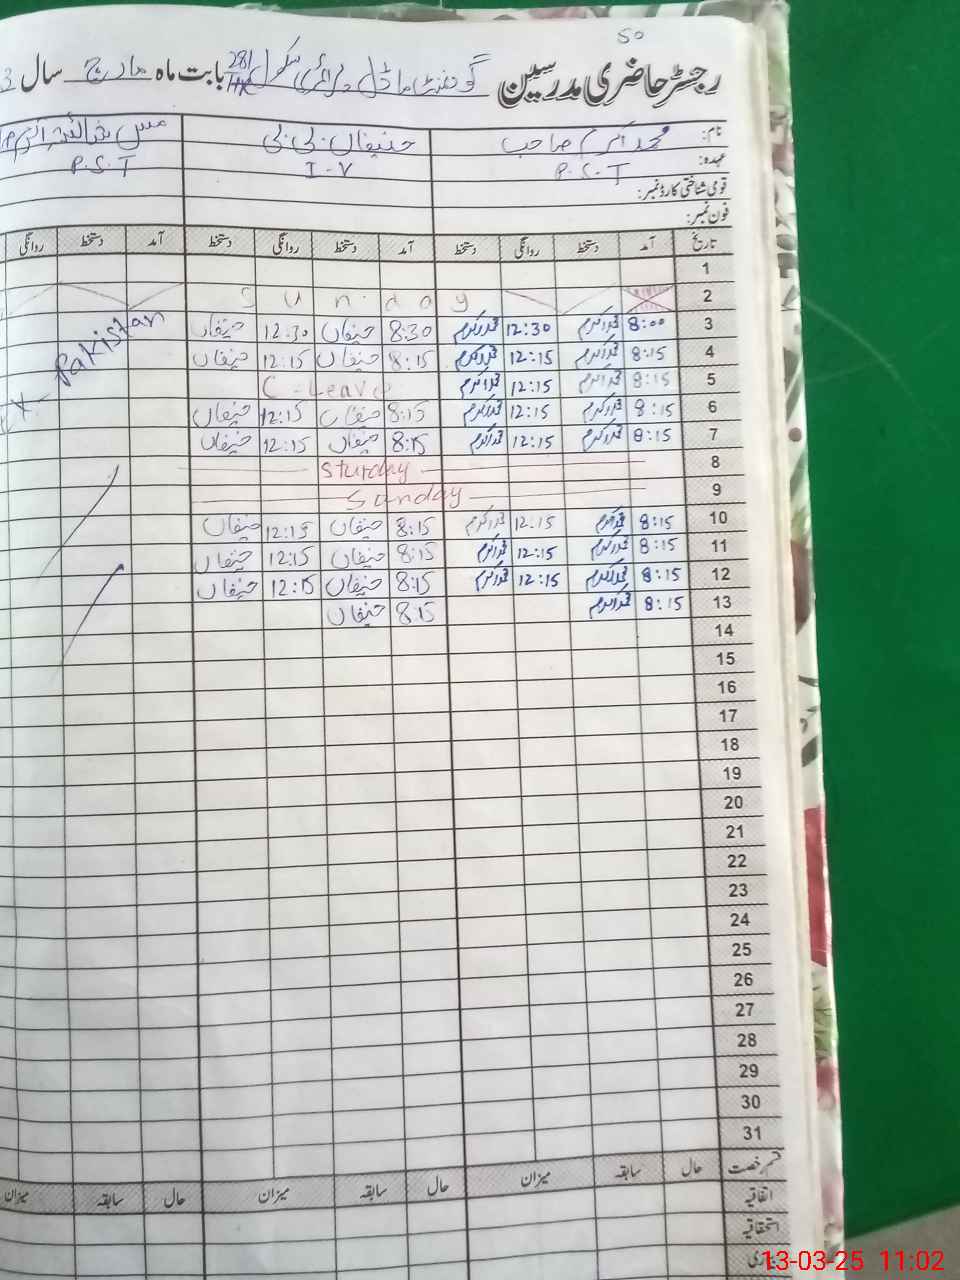 50
رجسٹر حاضری مدرسین گورنمنٹ ماڈل پرائمری سکول 281 بابت ماہ مارچ سال
نام: محمد اکرم صاحب حنیفاں بی بی مس
عہدہ: P.S.T I-V P.S.T
قومی شناختی کارڈ نمبر:
فون نمبر:
تاریخ آمد دستخط روانگی دستخط آمد دستخط روانگی دستخط آمد دستخط روانگی
1
2 Sunday
3 8:00 محمد اکرم 12:30 محمد اکرم 8:30 حنیفاں 12:30 حنیفاں
4 8:15 محمد اکرم 12:15 محمد اکرم 8:15 حنیفاں 12:15 حنیفاں Pakistan
5 8:15 محمد اکرم 12:15 محمد اکرم C-Leave
6 8:15 محمد اکرم 12:15 محمد اکرم 8:15 حنیفاں 12:15 حنیفاں
7 8:15 محمد اکرم 12:15 محمد اکرم 8:15 حنیفاں 12:15 حنیفاں
8 Sturday
9 Sunday
10 8:15 محمد اکرم 12:15 محمد اکرم 8:15 حنیفاں 12:15 حنیفاں
11 8:15 محمد اکرم 12:15 محمد اکرم 8:15 حنیفاں 12:15 حنیفاں
12 8:15 محمد اکرم 12:15 محمد اکرم 8:15 حنیفاں 12:15 حنیفاں
13 8:15 محمد اکرم 8:15 حنیفاں
14
15
16
17
18
19
20
21
22
23
24
25
26
27
28
29
30
31
قسم رخصت حال سابقہ میزان حال سابقہ میزان حال سابقہ میزان
اتفاقیہ
استحقاقیہ
13-03-25 11:02